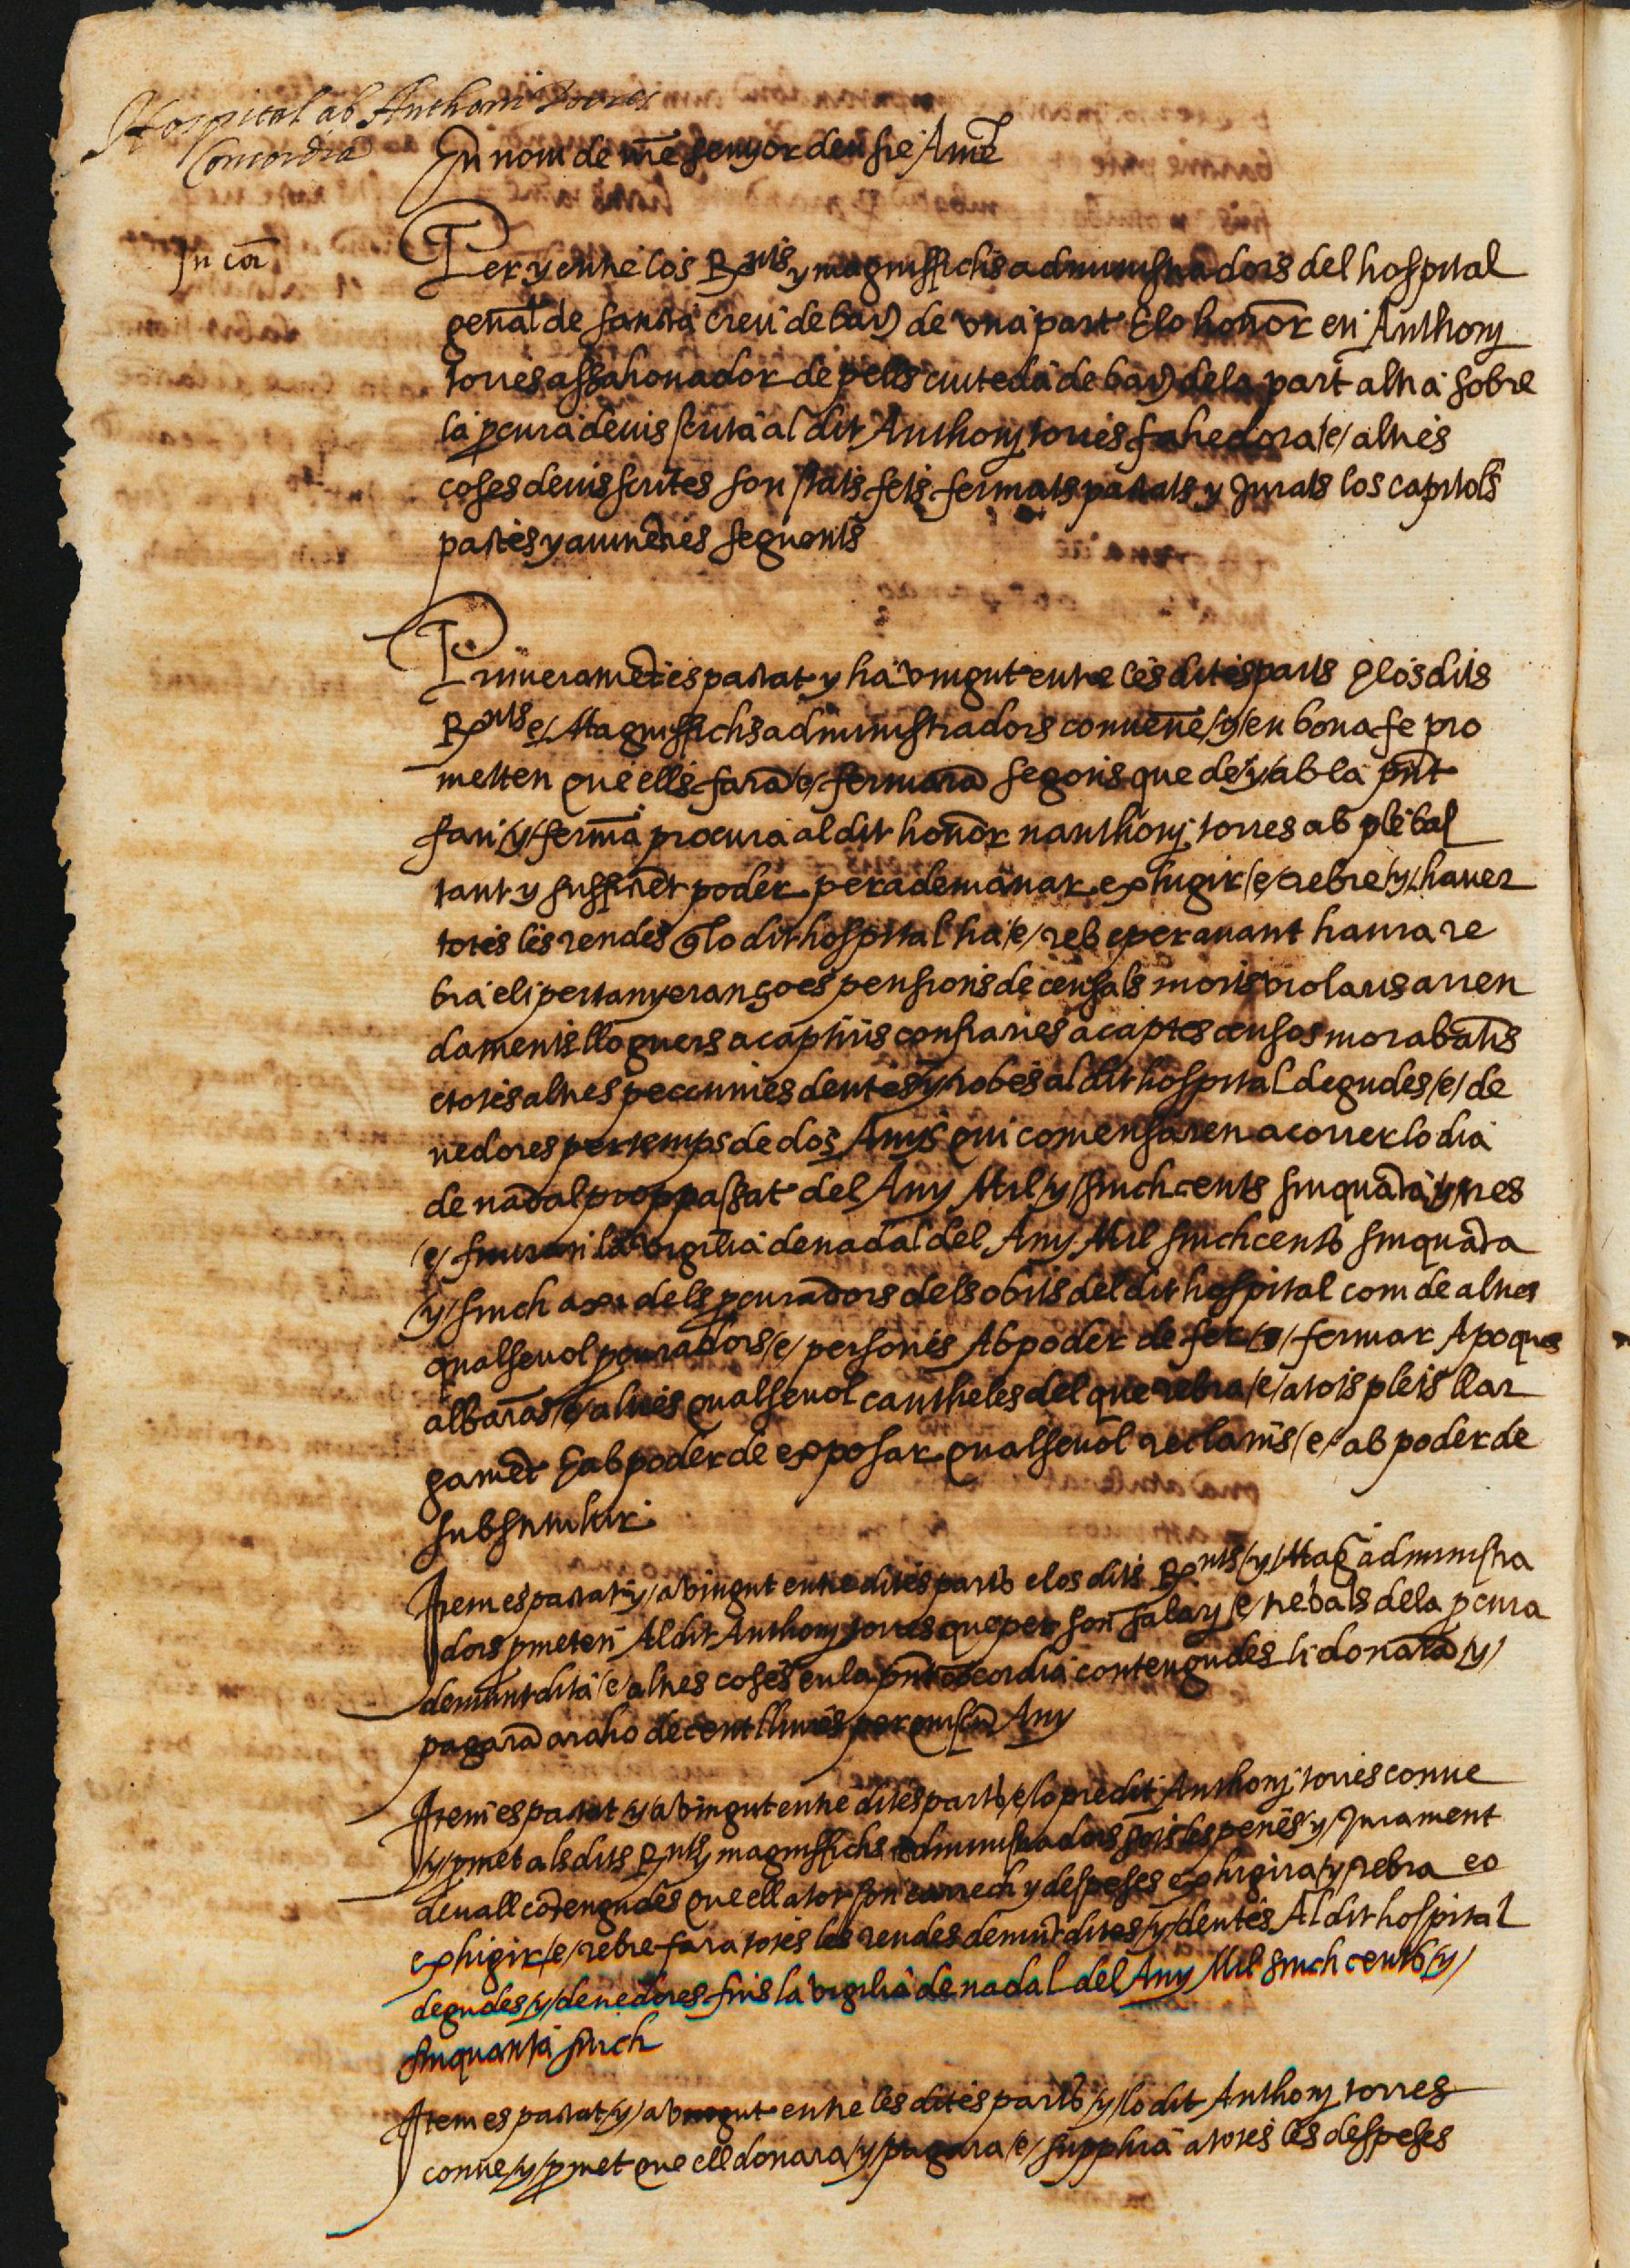 Hospital ab Anthoni Torres
Concordia
En nom de nre senyor deu sie Ame
In cōi
Per y entre los Rnts y magniffichs administradors del hospital
genal de sancta creu de bar) de vna part E lo honor en Anthonj
torres assahonador de pells ciuteda de bar) de la part altra sobre
la pcura deuis scrita al dit Anthonj torres fahedora /e/ altres
coses deuis scrites son stats fets fermats pactats y jurats los capitols
pactes y auinēces seguents
Primeramēt es pactat y ha vingut entre les dites parts E los dits
Rnts e/ Magniffichs administradors conuene /y/ en bona fe pro
metten que ells farā /e/ fermarā segons que de /y/ ab la pnt
fan /y/ fermā procura al dit honor nanthonj torres ab ple bas
tant y sufficiēt poder per ademanar exhigir /e/ rebre /y/ hauer
totes les rendes q lo dit hospital ha /e/ reb e per auant haura re
bra e li pertanyeran ço es pensions de censals morts violaris arren
daments lloguers acaptiris confraries acaptes censos morabatis
e totes altres peccunies deutes /y/ robes al dit hospital degudes /e/ de
uedores per temps de dos Anys qui comensaren a correr lo dia
de nadal propassat del Any Mil y sinch cents sinquāta y tres
/e/ finiran la vigilia de nadal del Any Mil sinch cents sinquāta
/y/ sinch axi dels pcuradors dels obits del dit hospital com de altres
qualseuol pcuradors /e/ persones Ab poder de fer /e/ fermar Apoques
albarās /e/ altres qualseuol cautheles del que rebra /e/ a tots plets llar
gamēt E ab poder de exposar qualseuol reclams /e/ ab poder de
substituhir
Item es pactat /y/ a vingut entre dites parts e los dits Rnts /y/ Mag administra
dors pmeten Al dit Anthonj torres que per son salary /e/ trebals de la pcura
demunt dita /e/ altres coses en la pnt cōcordia contengudes li donarā /y/
pagarā a raho de cent lliures per quiscū Any
Item es pactat /y/ a vingut entre dites parts /e/ lo predit Anthonj torres conue
/y/ pmet als dits Rnts y magniffichs administradors sots les penes /y/ Jurament
deuall cōtengudes que ell a tot son carrech y despeses exhigira /y/ rebra eo
exhigir /e/ rebre fara totes les rendes demūt dites /y/ deutes Al dit hospital
degudes /y/ deuedores fins la vigilia de nadal del Any Mil sinch cents /y/
sinquanta sinch
Item es pactat /y/ a vingut entre les dites parts /y/ lo dit Anthonj torres
conue /y/ pmet que ell donara /y/ pagara /e/ supplira a totes les despeses